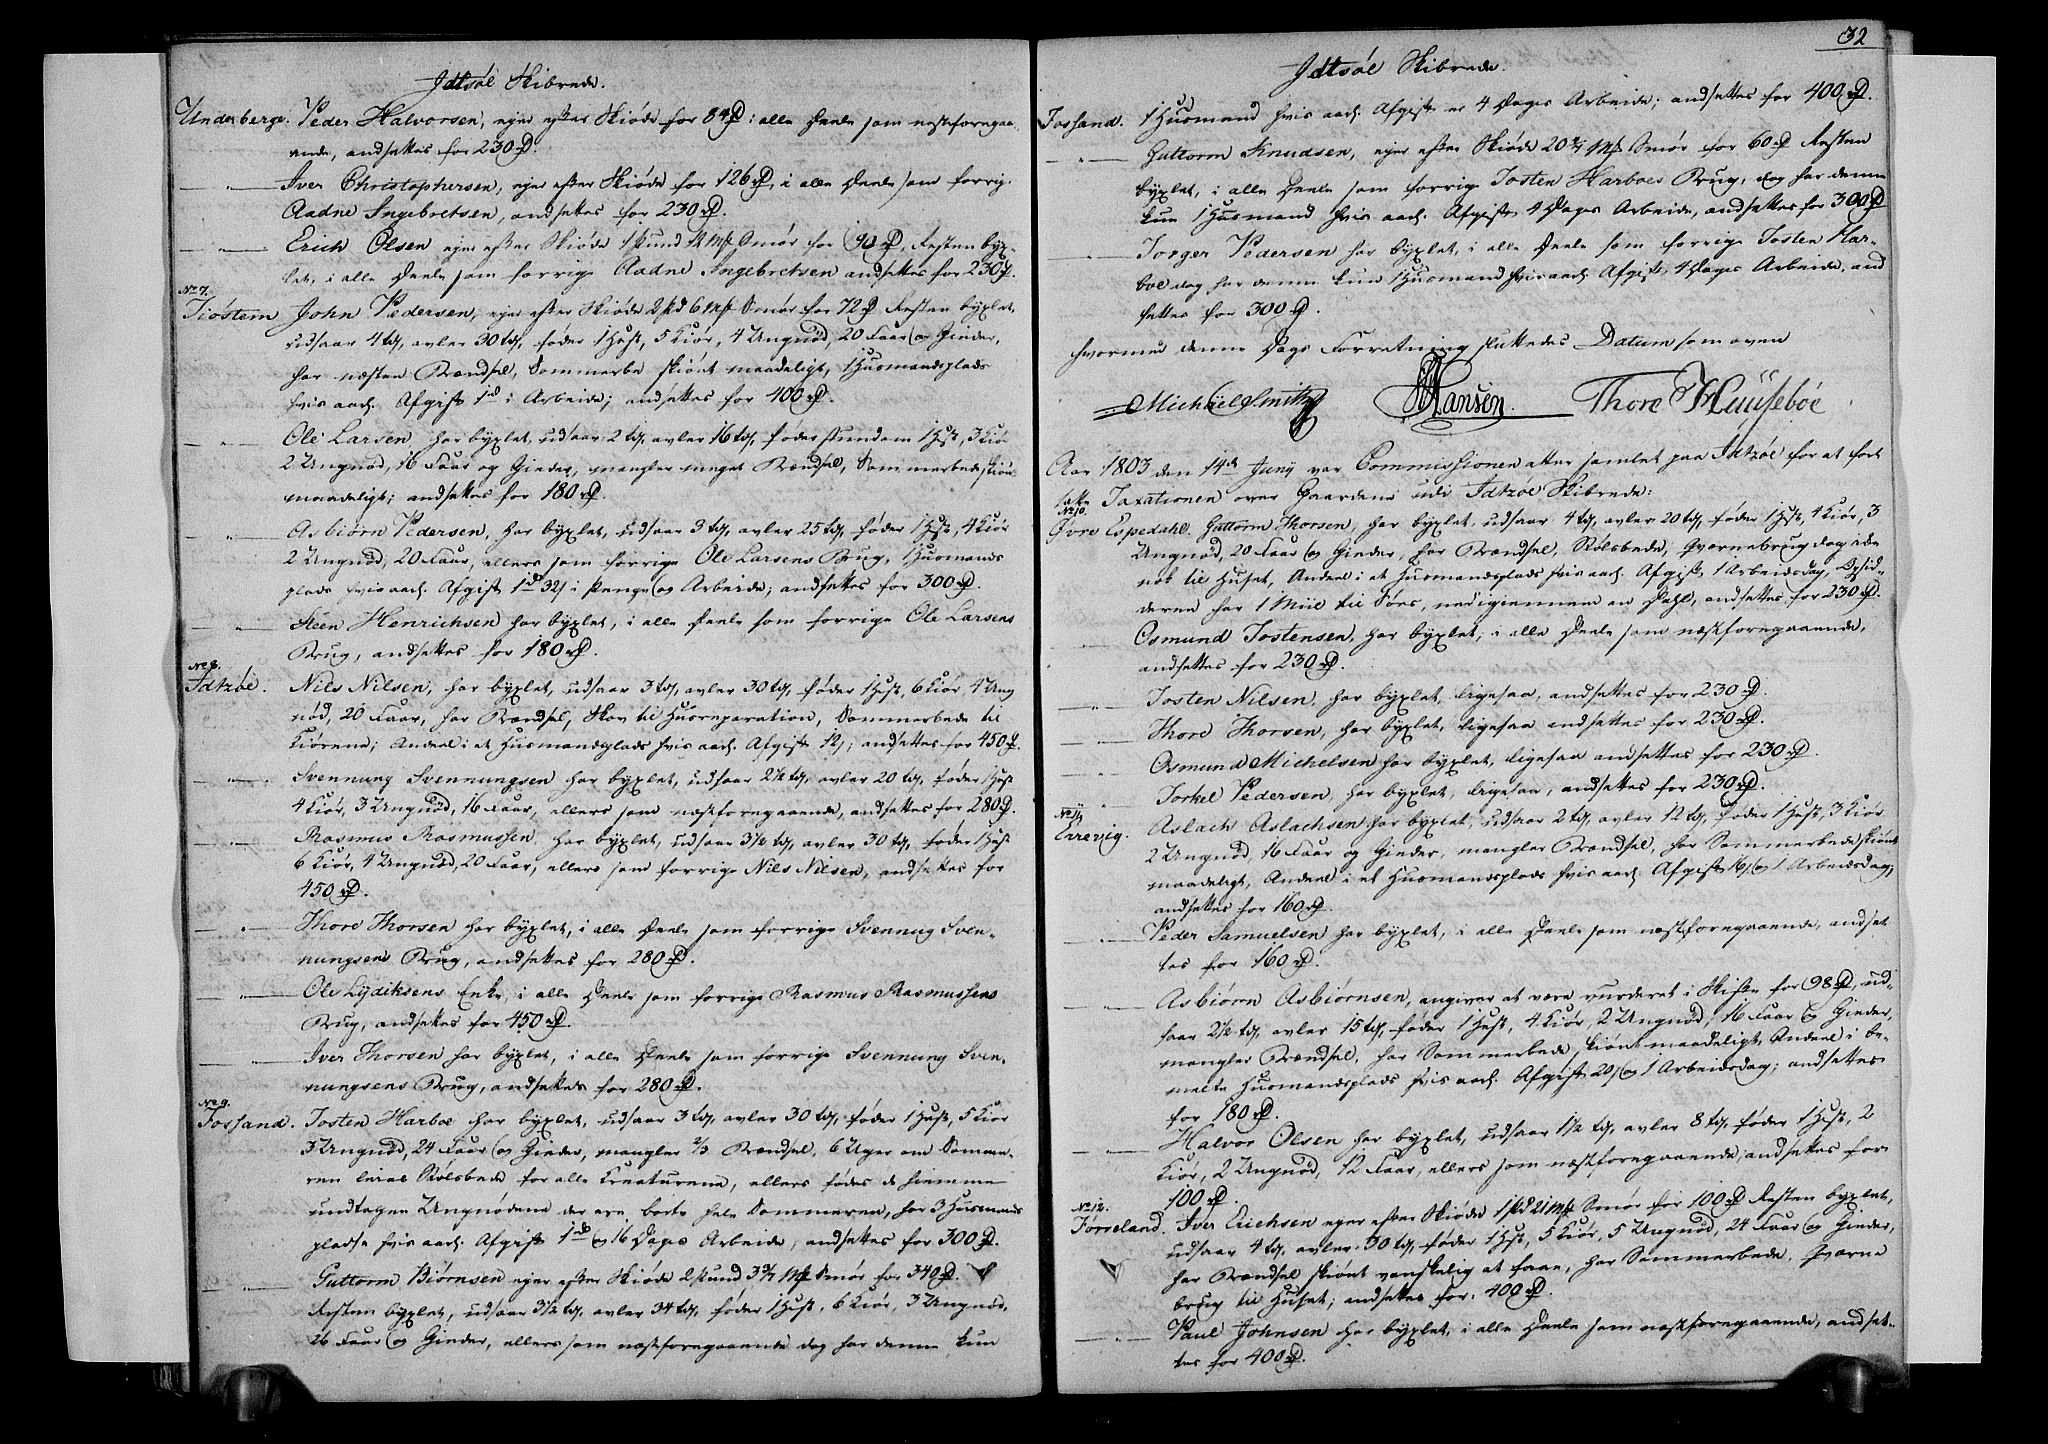 Jdtsøe Skibrede.
Underberge. Peder Halvorsen, ejer efter Skiøde for 84 rd i alle Deele som næstforegaa-
ende, andsettes for 230 rd.
—"— Iver Christophersen, ejer efter Skiøde for 126 rd, i alle Deele som forrige
Aadne Ingebretsen, andsettes for 230 rd.
—"— Erich Olsen ejer efter Skiøde 1 pund Smør for 90 rd, Resten byx-
let, i alle Deele som forrige Aadne Ingebretsen andsettes for 230 rd.
No 7.
Tiøstem John Pedersen, ejer efter Skiøde 2 pd 6 mk Smør for 72 rd Resten byxlet,
udsaar 4 tdr, avler 30 tdr, føder 1 Hest, 5 Kiør, 4 Ungnød, 20 Faar og Gieder,
har næsten Brændsel, Sommerbe skiønt maadeligt, 1 Huusmandsplads
hvis aarl. Afgift 1 rd i Arbeide; andsettes for 400 rd.
—"— Ole Larsen, har byxlet, udsaar 2 tdr, avler 16 tdr, føder stundom 1 Hest, 3 Kiør
2 Ungnød, 16 Faar og Gieder, mangler meget Brændsel, Sommerbede skiønt
maadeligt; andsettes for 180 rd.
—"— Asbiørn Pedersen, har byxlet, udsaar 3 tdr, avler 25 tdr, føder 1 Hest, 4 Kiør
2 Ungnød, 20 Faar, ellers som forrige Ole Larsens Brug, 1 Huusmands
plads hvis aarl. Afgift 1 rd 32 s i Penge og Arbeide; andsettes for 300 rd.
—"— Steen Henrichsen har byxlet, i alle Deele som forrige Ole Larsens
Brug, andsettes for 180 rd.
No 8.
Idtzøe. Nils Nilsen, har byxlet, udsaar 3 tdr, avler 30 tdr, føder 1 Hest, 6 Kiør, 4 Ung
nød, 20 Faar, har Brændsel, Skov til Huusreparation, Sommerbede til
Kiørene; Andeel i et Huusmandsplads hvis aarl. Afgift 12 s; andsettes for 450 rd.
—"— Svennung Svennungsen har byxlet, udsaar 2 1/2 tdr, avler 20 tdr, føder 1 Hest
4 Kiør, 3 Ungnød, 16 Faar, ellers som næstforegaaende, andsettes for 280 rd.
—"— Rasmus Rasmussen, har byxlet, udsaar 3 1/2 tdr, avler 30 tdr, føder 1 Hest
6 Kiør, 4 Ungnød, 20 Faar, ellers som forrige Nils Nilsen, andsettes for
450 rd.
—"— Thore Thorsen har byxlet, i alle Deele som forrige Svennug Sven-
nungsens Brug, andsettes for 280 rd.
—"— Ole Lydiksens Enke, i alle Deele som forrige Rasmus Rasmussens
Brug, andsettes for 450 rd.
—"— Iver Thorsen har byxlet, i alle Deele som forrige Svennung Sven-
nungsens Brug, andsettes for 280 rd.
No 9.
Fossand. Tosten Harboe har byxlet, udsaar 3 tdr, avler 30 tdr, føder 1 Hest, 5 Kiør
3 Ungnød, 24 Faar og Gieder, mangler 2/3 Brændsel, 6 Uger om Somme-
ren leies Stølsbede for alle Kreaturene, ellers fødes de hiemme
undtagen Ungnødene der ere borte hele Sommeren, har 3 Huusmands
pladse hvis aarl. Afgift 1 rd og 16 Dages Arbeide, andsettes for 300 rd.
—"— Guttorm Biørnsen ejer efter Skiøde 2 pund Smør for 340 rd.
Resten byxlet, udsaar 3 1/2 tdr, avler 34 tdr, føder 1 Hest, 6 Kiør, 3 Ungnød,
26 Faar og Gieder, ellers som næstforegaaende dog har denne kun
32
Jdtsøe Skibrede.
Fossand. 1 Huusmand hvis aarl. Afgift er 4 Dages Arbeide; andsettes for 400 rd.
—"— Guttorm Knudsen, ejer efter Skiøde Smør for 60 rd Resten
byxlet, i alle Deele som forrige Tosten Harboes Brug, dog har denne
kun 1 Huusmand hvis aarl. Afgift 4 Dages Arbeide, andsettes for 300 rd
—"— Torger Pedersen har byxlet, i alle Deele som forrige Tosten Har-
boe dog har denne kun 1 Huusmand hvis aarl. Afgift 4 Dages Arbeide, and
settes for 300 rd.
hvormed denne Dags Forretning sluttedes Datum som oven
Michael Smith Hansen Thore Huusebøe
Aar 1803 den 14de Juny var Commissionen atter samlet paa Idtzøe for at fort
sætte Taxationen over Gaardene udi Idtzøe Skibrede:
No 10.
Øvre Espedahl. Guttorm Thorsen, har byxlet, udsaar 4 tdr, avler 20 tdr, føder 1 Hest, 4 Kiør, 3
Ungnød, 20 Faar og Gieder, har Brændsel, Stølsbede, Qværnebrug dog ikke
nok til Huset, Andeel i et Huusmandsplads hvis aarl. Afgift 1 Arbeidsdag, Opsid-
derne har 1 Miil til Søes, nedigiennem en Dahl, andsettes for 230 rd.
Osmund Tostensen, har byxlet, i alle Deele som næstforegaaende,
andsettes for 230 rd.
—"— Tosten Nilsen, har byxlet, ligesaa, andsettes for 230 rd.
—"— Thore Thorsen, har byxlet, ligesaa andsettes for 230 rd.
—"— Osmund Michelsen har byxlet, ligesaa andsettes for 230 rd.
—"— Torkel Pedersen, har byxlet, ligesaa, andsettes for 230 rd.
No 11
Errevig. Aslach Aslachsen har byxlet, udsaar 2 tdr, avler 12 tdr, føder 1 Hest, 3 Kiør
2 Ungnød, 16 Faar og Gieder, mangler Brændsel, har Sommerbede skiønt
maadeligt, Andeel i et Huusmandsplads hvis aarl. Afgift 16 s og 1 Arbeidsdag;
andsettes for 160 rd.
—"— Peder Samuelsen har byxlet, i alle Deele som næstforegaaende, andset
tes for 160 rd.
—"— Asbiørn Asbiørnsen, angiver at være vurderet i Skifte for 98 rd, ud-
saar 2 1/2 tdr, avler 15 tdr, føder 1 Hest, 4 Kiør, 2 Ungnød, 16 Faar og Gieder,
mangler Brændsel, har Sommerbede, skiønt maadeligt, Andeel i be-
melte Huusmandsplads hvis aarl. Afgift 20 s og 1 Arbeidsdag; andsettes
for 180 rd.
—"— Halvor Olsen har byxlet, udsaar 1 1/2 tdr, avler 8 tdr, føder 1 Hest, 2
Kiør, 2 Ungnød, 12 Faar, ellers som næstforegaaende, andsettes for
100 rd.
No 12.
Førreland. Iver Erichsen ejer efter Skiøde 1 pd 21 mk Smør for 100 rd Resten byxlet,
udsaar 4 tdr, avler 30 tdr, føder 1 Hest, 5 Kiør, 5 Ungnød, 24 Faar og Gieder,
har Brændsel skiønt vanskelig at faae, har Sommerbede, Qværne
brug til Huset; andsettes for 400 rd.
—"— Paul Johnsen har byxlet, i alle Deele som næstforegaaende, andset-
tes for 400 rd.